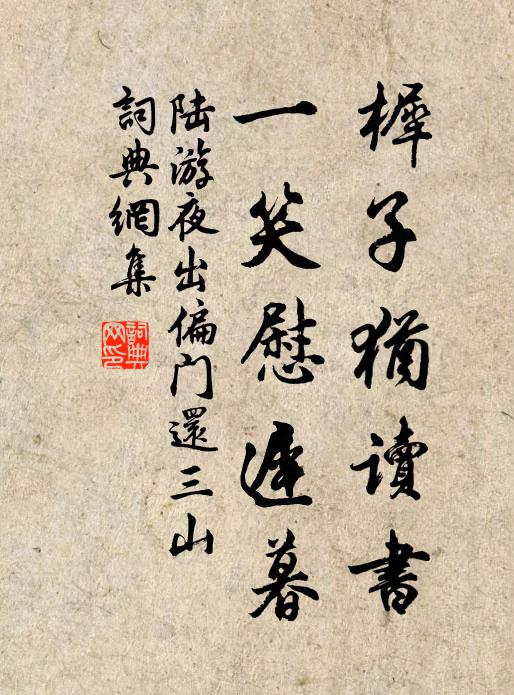 稺子猶讀書
一笑慰遲暮
陸游夜出偏門還三山
詞典網集
詞典网印